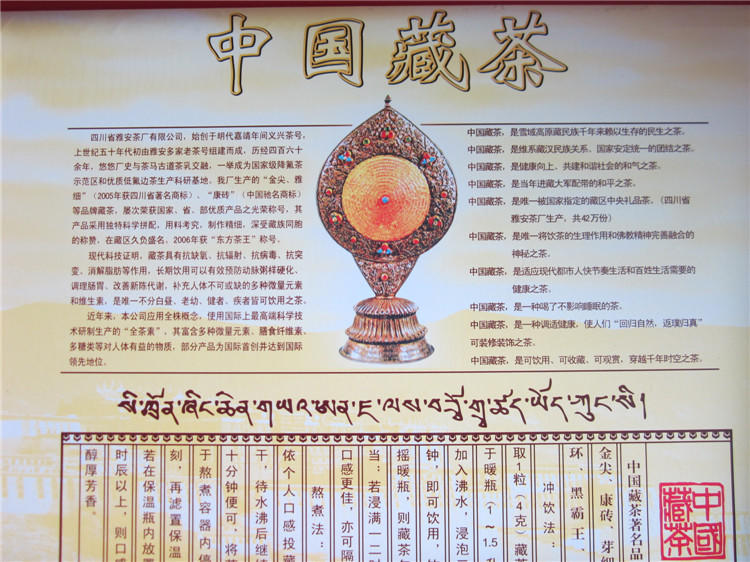 中国藏茶
四川省雅安茶厂有限公司，始创于明代嘉靖年间义兴茶号，
上世纪五十年代初由雅安多家老茶号组建而成，历经四百六十
余年，悠悠厂史与茶马古道茶乳交融，一举成为国家级降氟茶
示范区和优质低氟边茶生产科研基地。我厂生产的“金尖、雅
细”（2005年获四川省著名商标）、“康砖”（中国驰名商标）
等品牌藏茶，屡次荣获国家、省、部优质产品之光荣称号，其
产品采用独特科学拼配，用料考究，制作精细，深受藏族同胞
的称赞，在藏区久负盛名，2006年获“东方茶王”称号。
现代科技证明，藏茶具有抗缺氧、抗辐射、抗病毒、抗突
变、消解脂肪等作用，长期饮用可以有效预防动脉粥样硬化、
调理肠胃、改善新陈代谢，补充人体不可或缺的多种微量元素
和维生素，是唯一不分白昼、老幼、健者、疾者皆可饮用之茶。
近年来，本公司应用全株概念，使用国际上最高端科学技
术研制生产的“全茶素”，其富含多种微量元素、膳食纤维素、
多糖类等对人体有益的物质，部分产品为国际首创并达到国际
领先地位。
中国藏茶，是雪域高原藏民族千年来赖以生存的民生之茶。
中国藏茶，是维系藏汉民族关系、国家安定统一的团结之茶。
中国藏茶，是健康向上、共建和谐社会的和气之茶。
中国藏茶，是当年进藏大军配带的和平之茶。
中国藏茶，是唯一被国家指定的藏区中央礼品茶。（四川省
雅安茶厂生产，共42万份）
中国藏茶，是唯一将饮茶的生理作用和佛教精神完善融合的
神秘之茶。
中国藏茶，是适应现代都市人快节奏生活和百姓生活需要的
健康之茶。
中国藏茶，是一种喝了不影响睡眠的茶。
中国藏茶，是一种调适健康，使人们“回归自然，返璞归真”
可装修装饰之茶。
中国藏茶，是可饮用、可收藏、可观赏，穿越千年时空之茶。
中国藏茶著名品
金尖、康砖、芽细
环、黑霸王、
冲饮法：
取1粒（4克）藏茶
于暖瓶（1～1.5升
加入沸水，浸泡三
钟，即可饮用，
摇暖瓶，则藏茶
当：若浸满一二时
口感更佳，亦可隔
熬煮法：
依个人口感投藏
干，待水沸后继续
十分钟便可，将茶
于熬煮容器内停
刻，再滤置保温
若在保温瓶内放置
时辰以上，则口感
醇厚芳香。
中國
藏茶